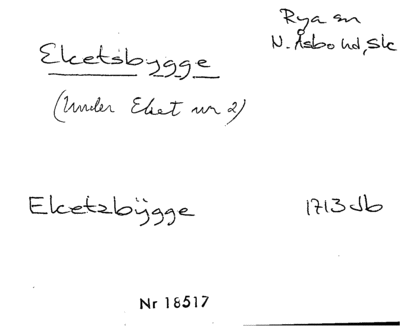 Rya sn
N. Åsbo hd, Sk
Eketsbygge
(Under Eket nr 2)
Eketzbÿgge 1713 Jb
Nr 18517